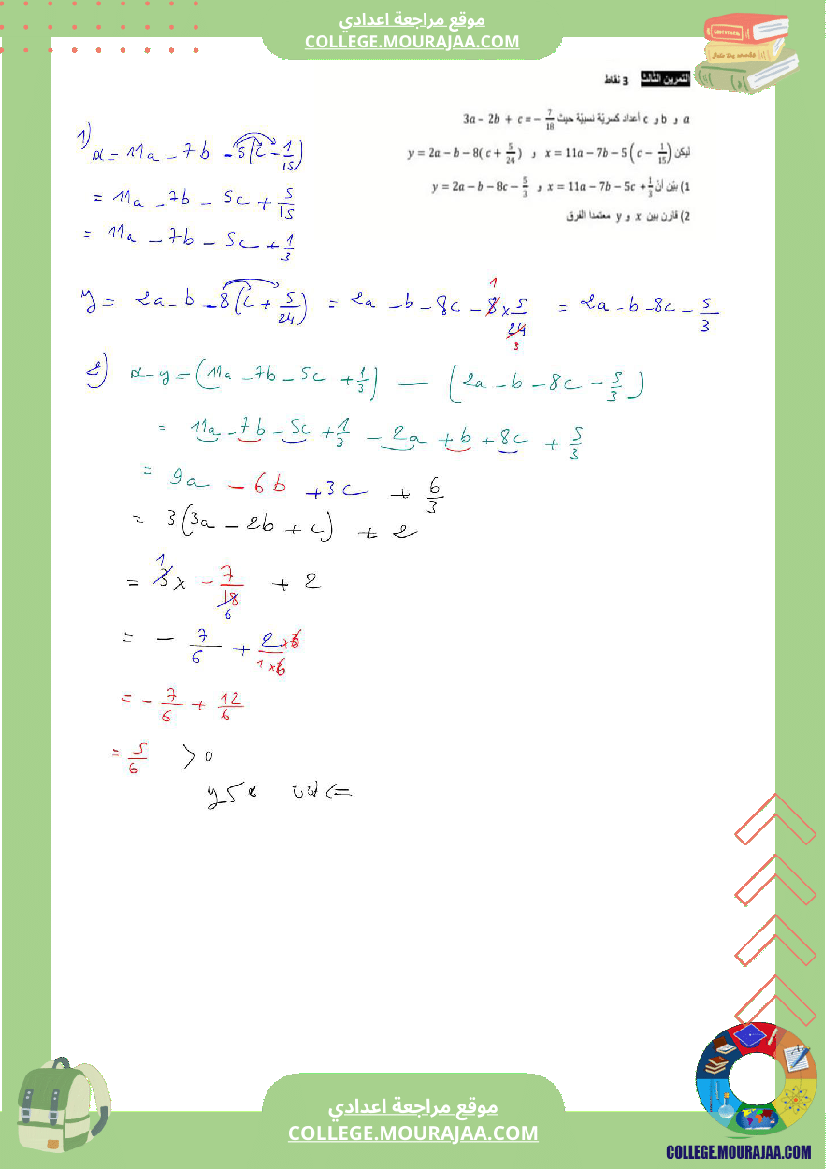 موقع مراجعة اعدادي
COLLEGE.MOURAJAA.COM
التمرين الثالث 3 نقاط
a و b و c أعداد كسريّة نسبيّة حيث 3a – 2b + c = – 7/18
ليكن x = 11a – 7b – 5(c – 1/15) و y = 2a – b – 8(c + 5/24)
1) بيّن أنّ x = 11a – 7b – 5c + 1/3 و y = 2a – b – 8c – 5/3
2) قارن بين x و y معتمدا الفرق
1) x = 11a - 7b - 5(c - 1/15)
= 11a - 7b - 5c + 5/15
= 11a - 7b - 5c + 1/3
y = 2a - b - 8(c + 5/24) = 2a - b - 8c - 8 × 5/24 = 2a - b - 8c - 5/3
1
3
2) x - y = (11a - 7b - 5c + 1/3) - (2a - b - 8c - 5/3)
= 11a - 7b - 5c + 1/3 - 2a + b + 8c + 5/3
= 9a - 6b + 3c + 6/3
= 3(3a - 2b + c) + 2
1
= 3 × - 7/18 + 2
6
= - 7/6 + 2×6/1×6
= - 7/6 + 12/6
= 5/6 > 0
موقع مراجعة اعدادي
COLLEGE.MOURAJAA.COM
COLLEGE.MOURAJAA.COM